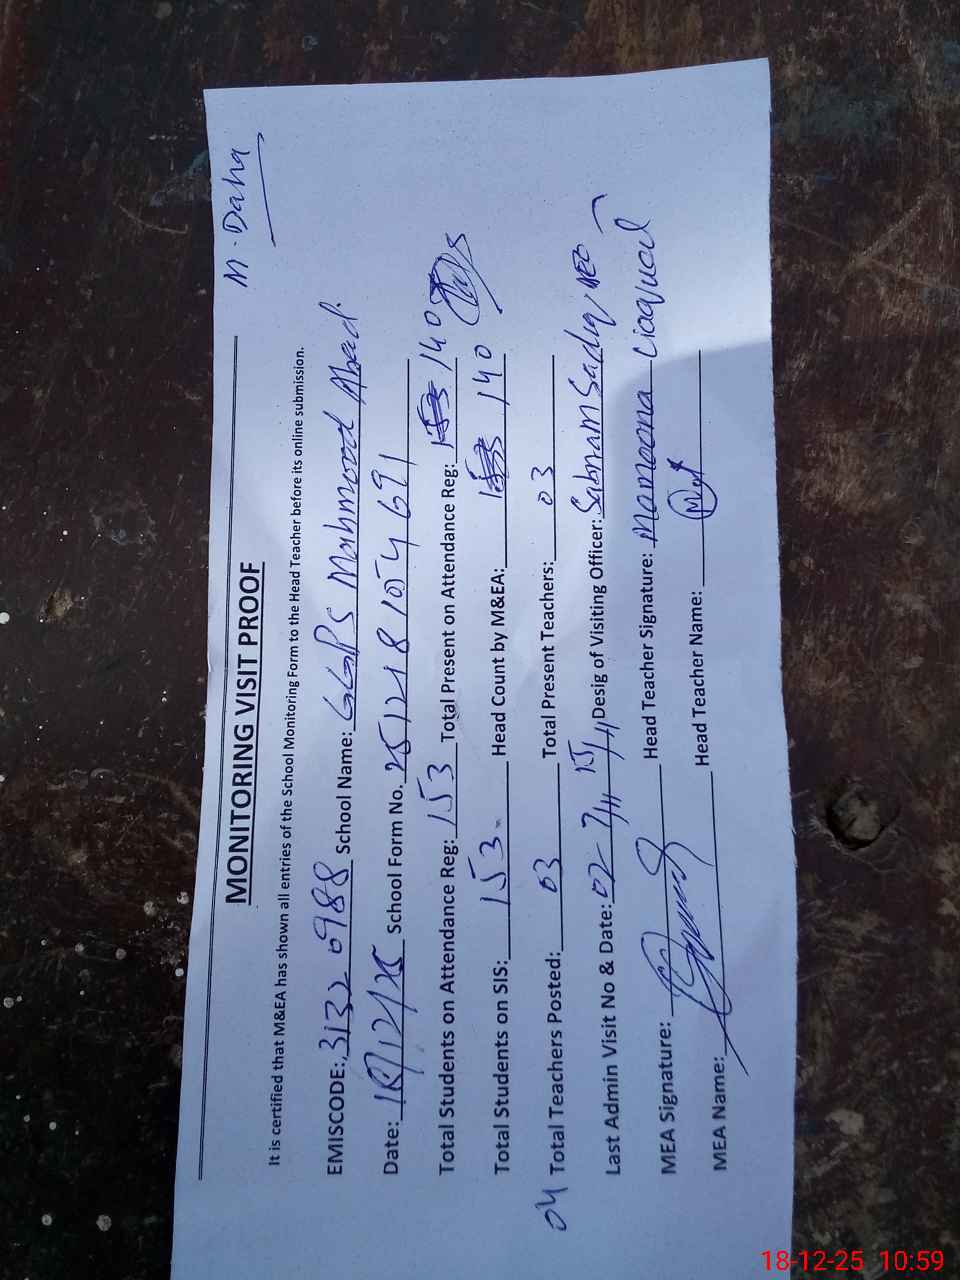 M. Daha
MONITORING VISIT PROOF
It is certified that M&EA has shown all entries of the School Monitoring Form to the Head Teacher before its online submission.
EMISCODE: 31320988 School Name: GGPS Mahmood Abad.
Date: 18/12/25 School Form No. 251218105469
Total Students on Attendance Reg: 153 Total Present on Attendance Reg: 140
Total Students on SIS: 153 Head Count by M&EA: 140
04 Total Teachers Posted: 03 Total Present Teachers: 03
Last Admin Visit No & Date: 02 Desig of Visiting Officer: Sabnam Sadiq AEO
MEA Signature: Head Teacher Signature: Mamoona Liaquat
MEA Name: Head Teacher Name:
18-12-25 10:59